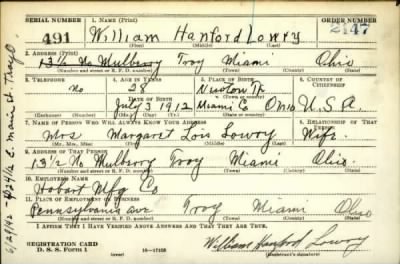 SERIAL NUMBER 1. NAME (Print) ORDER NUMBER
491 William Hanford Lowry 2147
(First) (Middle) (Last)
2. ADDRESS (Print)
13½ No Mulberry Troy Miami Ohio
(Number and street or R. F. D. number) (Town) (County) (State)
3. TELEPHONE 4. AGE IN YEARS 5. PLACE OF BIRTH 6. COUNTRY OF CITIZENSHIP
No 28 Newton Tp
DATE OF BIRTH Miami Co Ohio U.S.A.
July 3 1912
7. NAME OF PERSON WHO WILL ALWAYS KNOW YOUR ADDRESS 8. RELATIONSHIP OF THAT PERSON
Mrs Margaret Lois Lowry Wife
(Mr., Mrs., Miss) (First) (Middle) (Last)
9. ADDRESS OF THAT PERSON
13½ No Mulberry Troy Miami Ohio.
(Number and street or R. F. D. number) (Town) (County) (State)
10. EMPLOYER'S NAME
Hobart Mfg Co
11. PLACE OF EMPLOYMENT OR BUSINESS
Pennsylvania ave Troy Miami Ohio
(Number and street or R. F. D. number) (Town) (County) (State)
I AFFIRM THAT I HAVE VERIFIED ABOVE ANSWERS AND THAT THEY ARE TRUE.
REGISTRATION CARD
D. S. S. Form 1 16—17105 William Hanford Lowry
(Registrant's signature)
E. Main St. Troy O